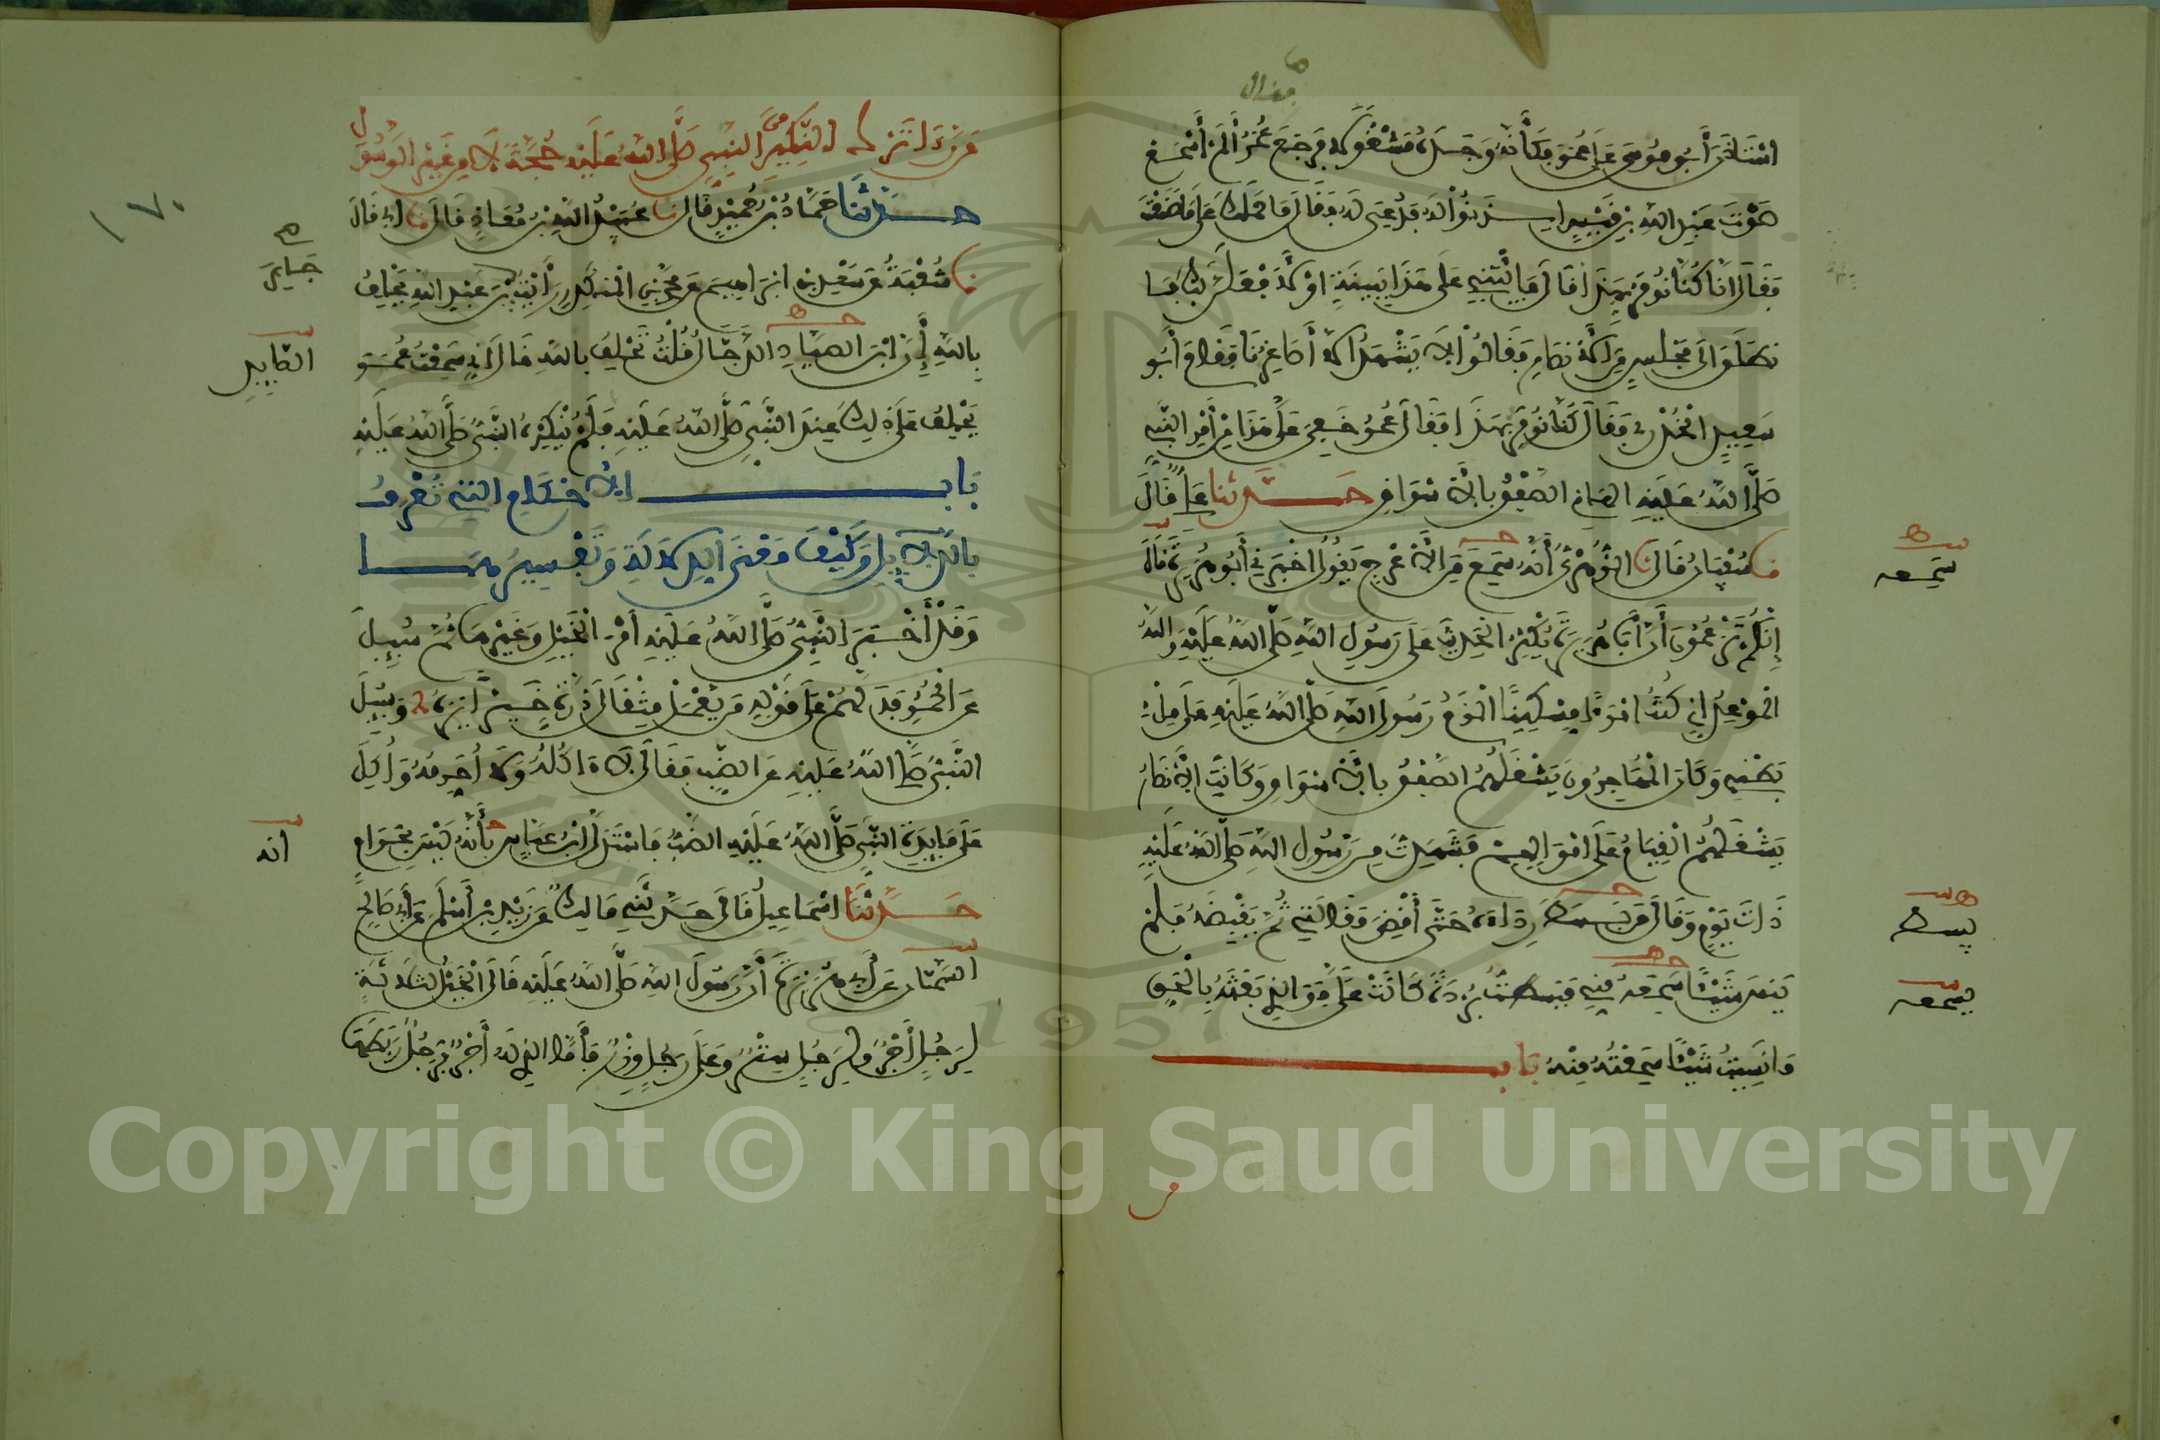 استاذن أبو موسى على عمر فكأنه وجده مشغولا فرجع عمر ألم أسمع
صوت عبد الله بن قيس ايذنوا له فدعي له فقال ما حملك على ما صنعت
فقال انا كنا نومر بهذا قال فاتني على هذا ببينة او لأفعلن بك
فانطلق الى مجلس من الأنصار فقالوا لا يشهد الا أصاغرنا فقام أبو
سعيد الخدري فقال كنا نومر بهذا فقال عمر خفي علي هذا من أمر النبي
صلى الله عليه الهاني الصفق بالأسواق حدثنا علي قال
نا سفيان قال نا الزهري أنه سمع من الأعرج يقول أخبرني أبو هريرة قال
إنكم تزعمون أن أبا هريرة يكثر الحديث على رسول الله صلى الله عليه والله
الموعد اني كنت امرءا مسكينا الزم رسول الله صلى الله عليه على ملء
بطني وكان المهاجرون يشغلهم الصفق بالأسواق وكانت الأنصار
يشغلهم القيام على اموالهم فشهدت من رسول الله صلى الله عليه
ذات يوم وقال من بسط رداءه حتى أقضي مقالتي ثم يقبضه فلم
ينس شيئا سمعه مني فبسطت بردة كانت علي فوالذي بعثه بالحق
ما نسيت شيئا سمعته منه باب
سمعه
يبسط
يسمعه
من رأى ترك النكير من النبي صلى الله عليه حجة لا من غير الرسول
حدثنا حماد بن حميد قال نا عبيد الله بن معاذ قال نا أبي قال
نا شعبة عن سعد بن ابراهيم عن محمد بن المنكدر رأيت جابر بن عبد الله يحلف
بالله إن ابن الصياد الدجال قلت تحلف بالله قال اني سمعت عمر
يحلف على ذلك عند النبي صلى الله عليه فلم ينكره النبي صلى الله عليه
باب الأحكام التي تعرف
بالدلايل وكيف معنى الدلالة وتفسيرها
وقد أخبر النبي صلى الله عليه أمر الخيل وغيرها ثم سيل
عن الحمر فدلهم على قوله من يعمل مثقال ذرة خيرا يره وسيل
النبي صلى الله عليه عن الضب فقال لا اكله ولا أحرمه وأكل
على مايدة النبي صلى الله عليه الضب فاستدل ابن عباس بأنه ليس بحرام
حدثنا اسماعيل قال حدثني مالك عن زيد بن أسلم عن أبي صالح
السمان عن أبي هريرة أن رسول الله صلى الله عليه قال الخيل لثلاثة
لرجل أجر ولرجل ستر وعلى رجل وزر فأما الذي له أجر فرجل ربطها
١٧٠
جابر
الصايد
انه
1957
Copyright © King Saud University